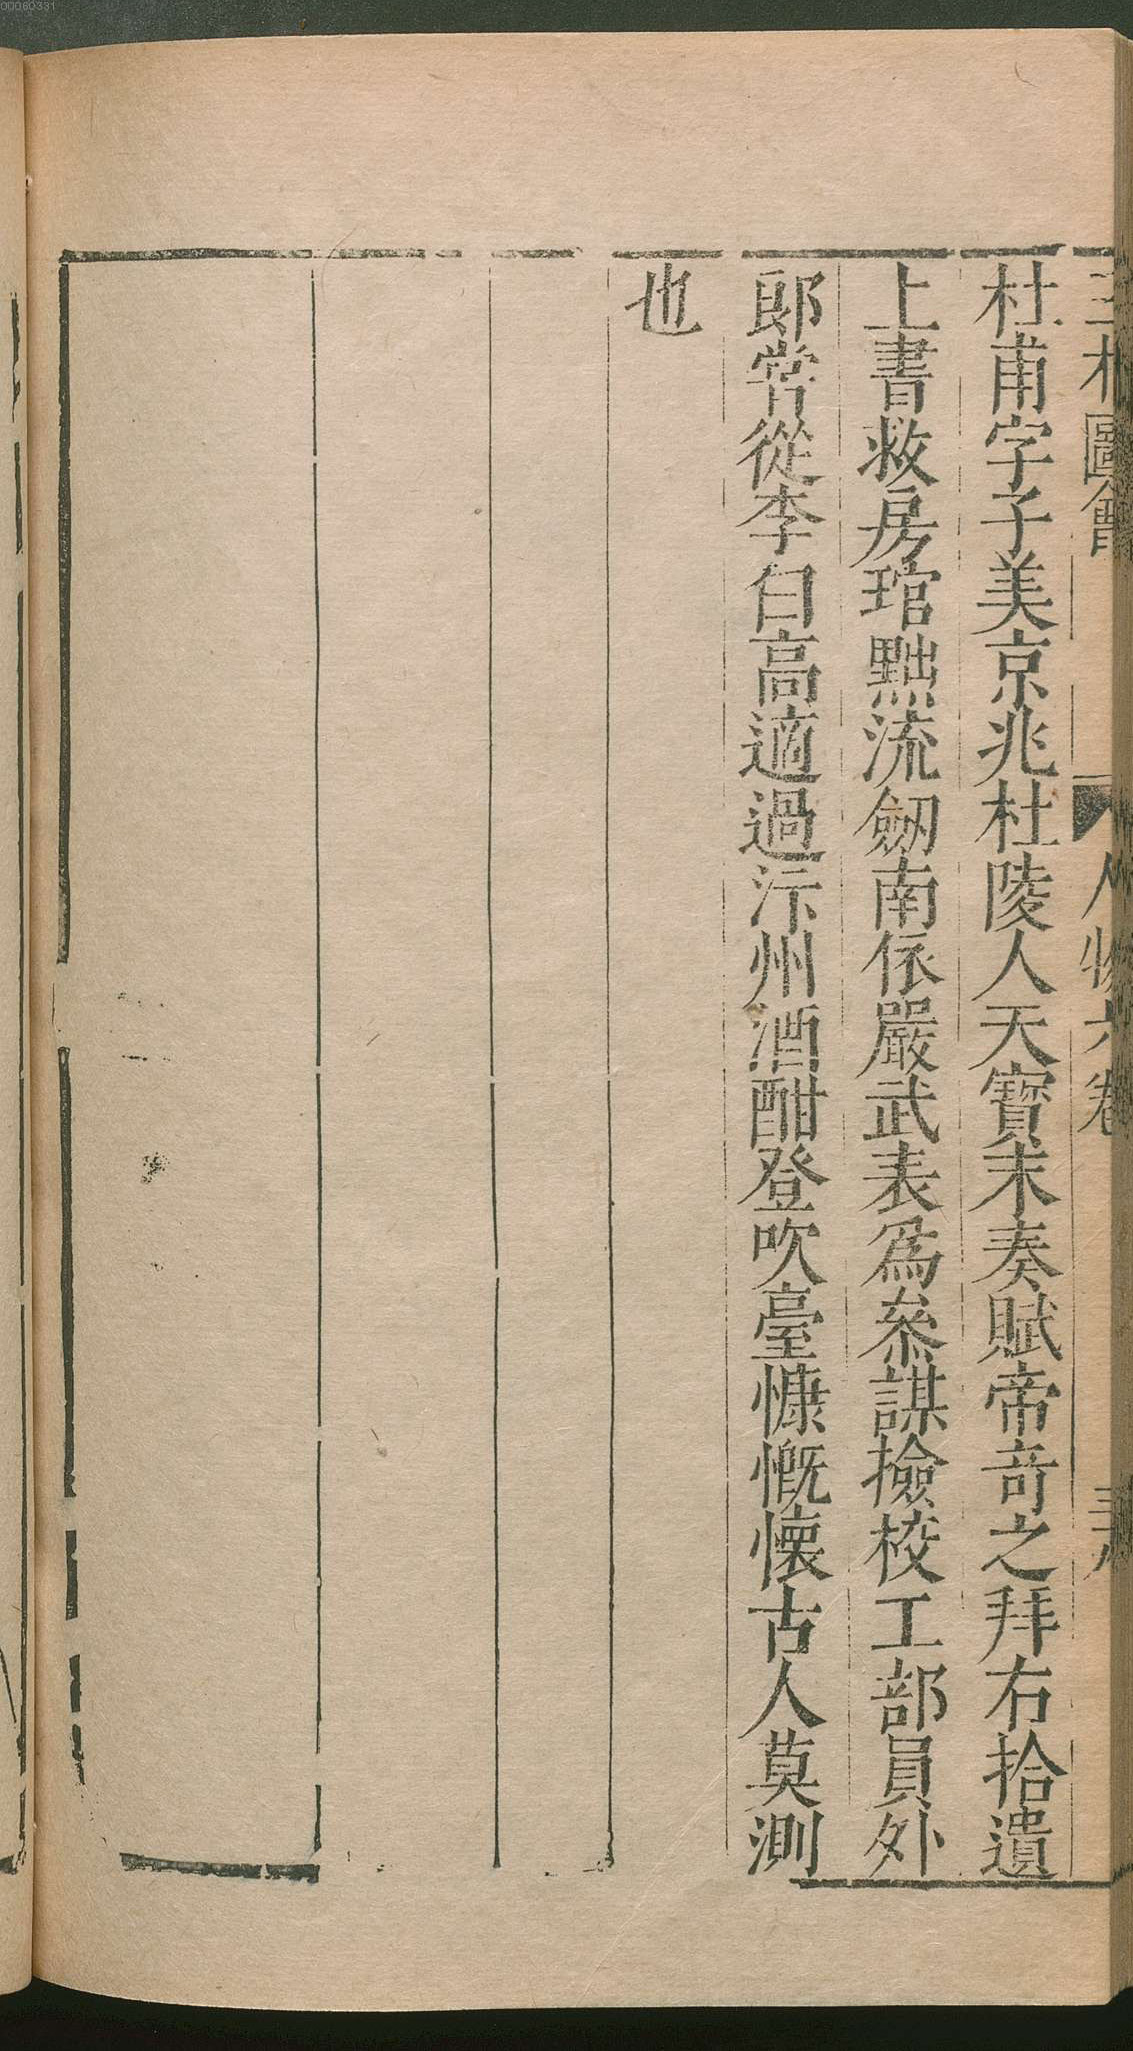 00060331
三才圖會 人物六卷 三八
杜甫字子美京兆杜陵人天寶末奏賦帝竒之拜右拾遺
上書救房琯黜流劒南依嚴武表爲叅謀撿校工部員外
郎常從李白高適過汴州酒酣登吹臺慷慨懷古人莫測
也